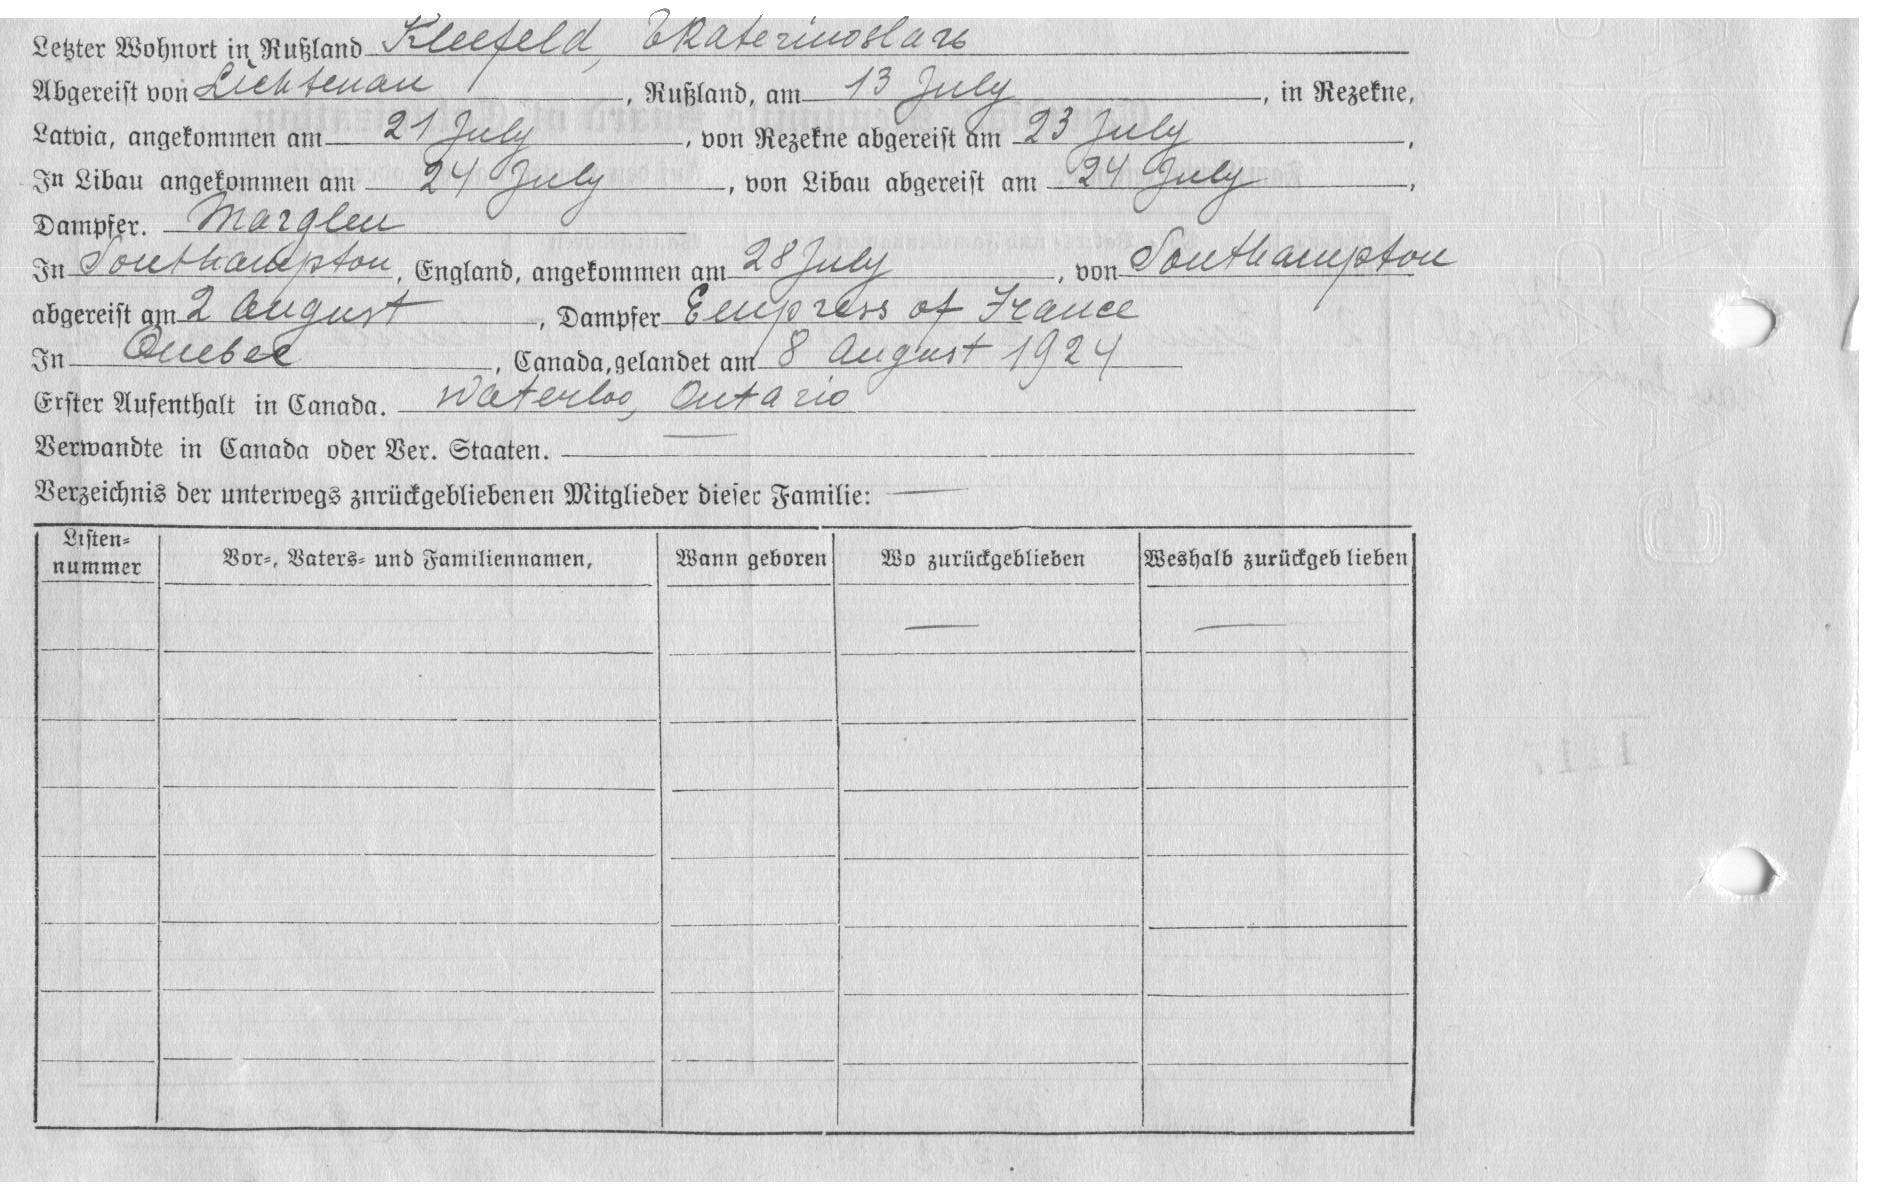 Letzter Wohnort in Rußland Kleefeld, Ekaterinoslaw
Abgereist von Lichtenau, Rußland, am 13 July, in Rezekne,
Latvia, angekommen am 21 July, von Rezekne abgereist am 23 July,
In Libau angekommen am 24 July, von Libau abgereist am 24 July,
Dampfer. Marglen
In Southampton, England, angekommen am 28 July, von Southampton
abgereist am 2 August, Dampfer Empress of France
In Quebec, Canada, gelandet am 8 August 1924
Erster Aufenthalt in Canada. Waterloo, Ontario
Verwandte in Canada oder Ver. Staaten. —
Verzeichnis der unterwegs zurückgebliebenen Mitglieder dieser Familie: —
Listen-
nummer
Vor-, Vaters- und Familiennamen, Wann geboren Wo zurückgeblieben Weshalb zurückgeblieben
— —